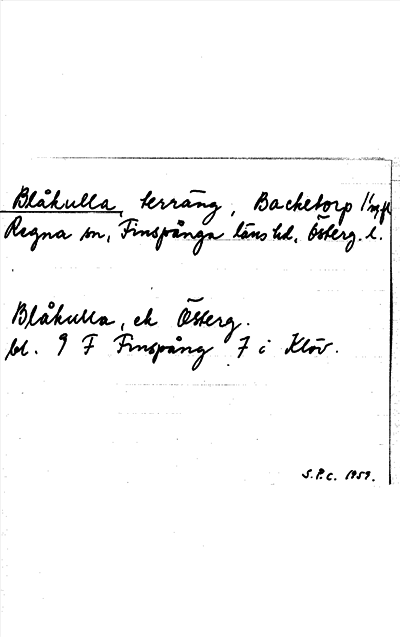 Blåkulla, terräng, Backetorp
Regna sn, Finspånga läns hd, Österg. l.
Blåkulla, ek Österg.
bl. 9 F Finspång 7 c Klöv.
S.P.C. 1959.